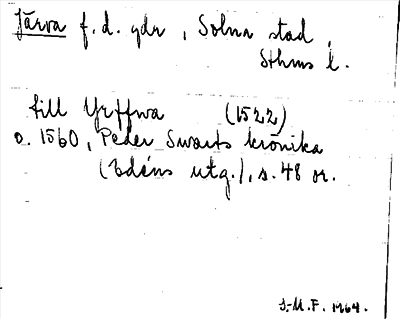 Järva f.d. gdr, Solna stad,
Sthms l.
till Yrffwa (1522)
o. 1560, Peder Swarts krönika
(Edéns utg.), s. 48 or.
I-M.F. 1964.